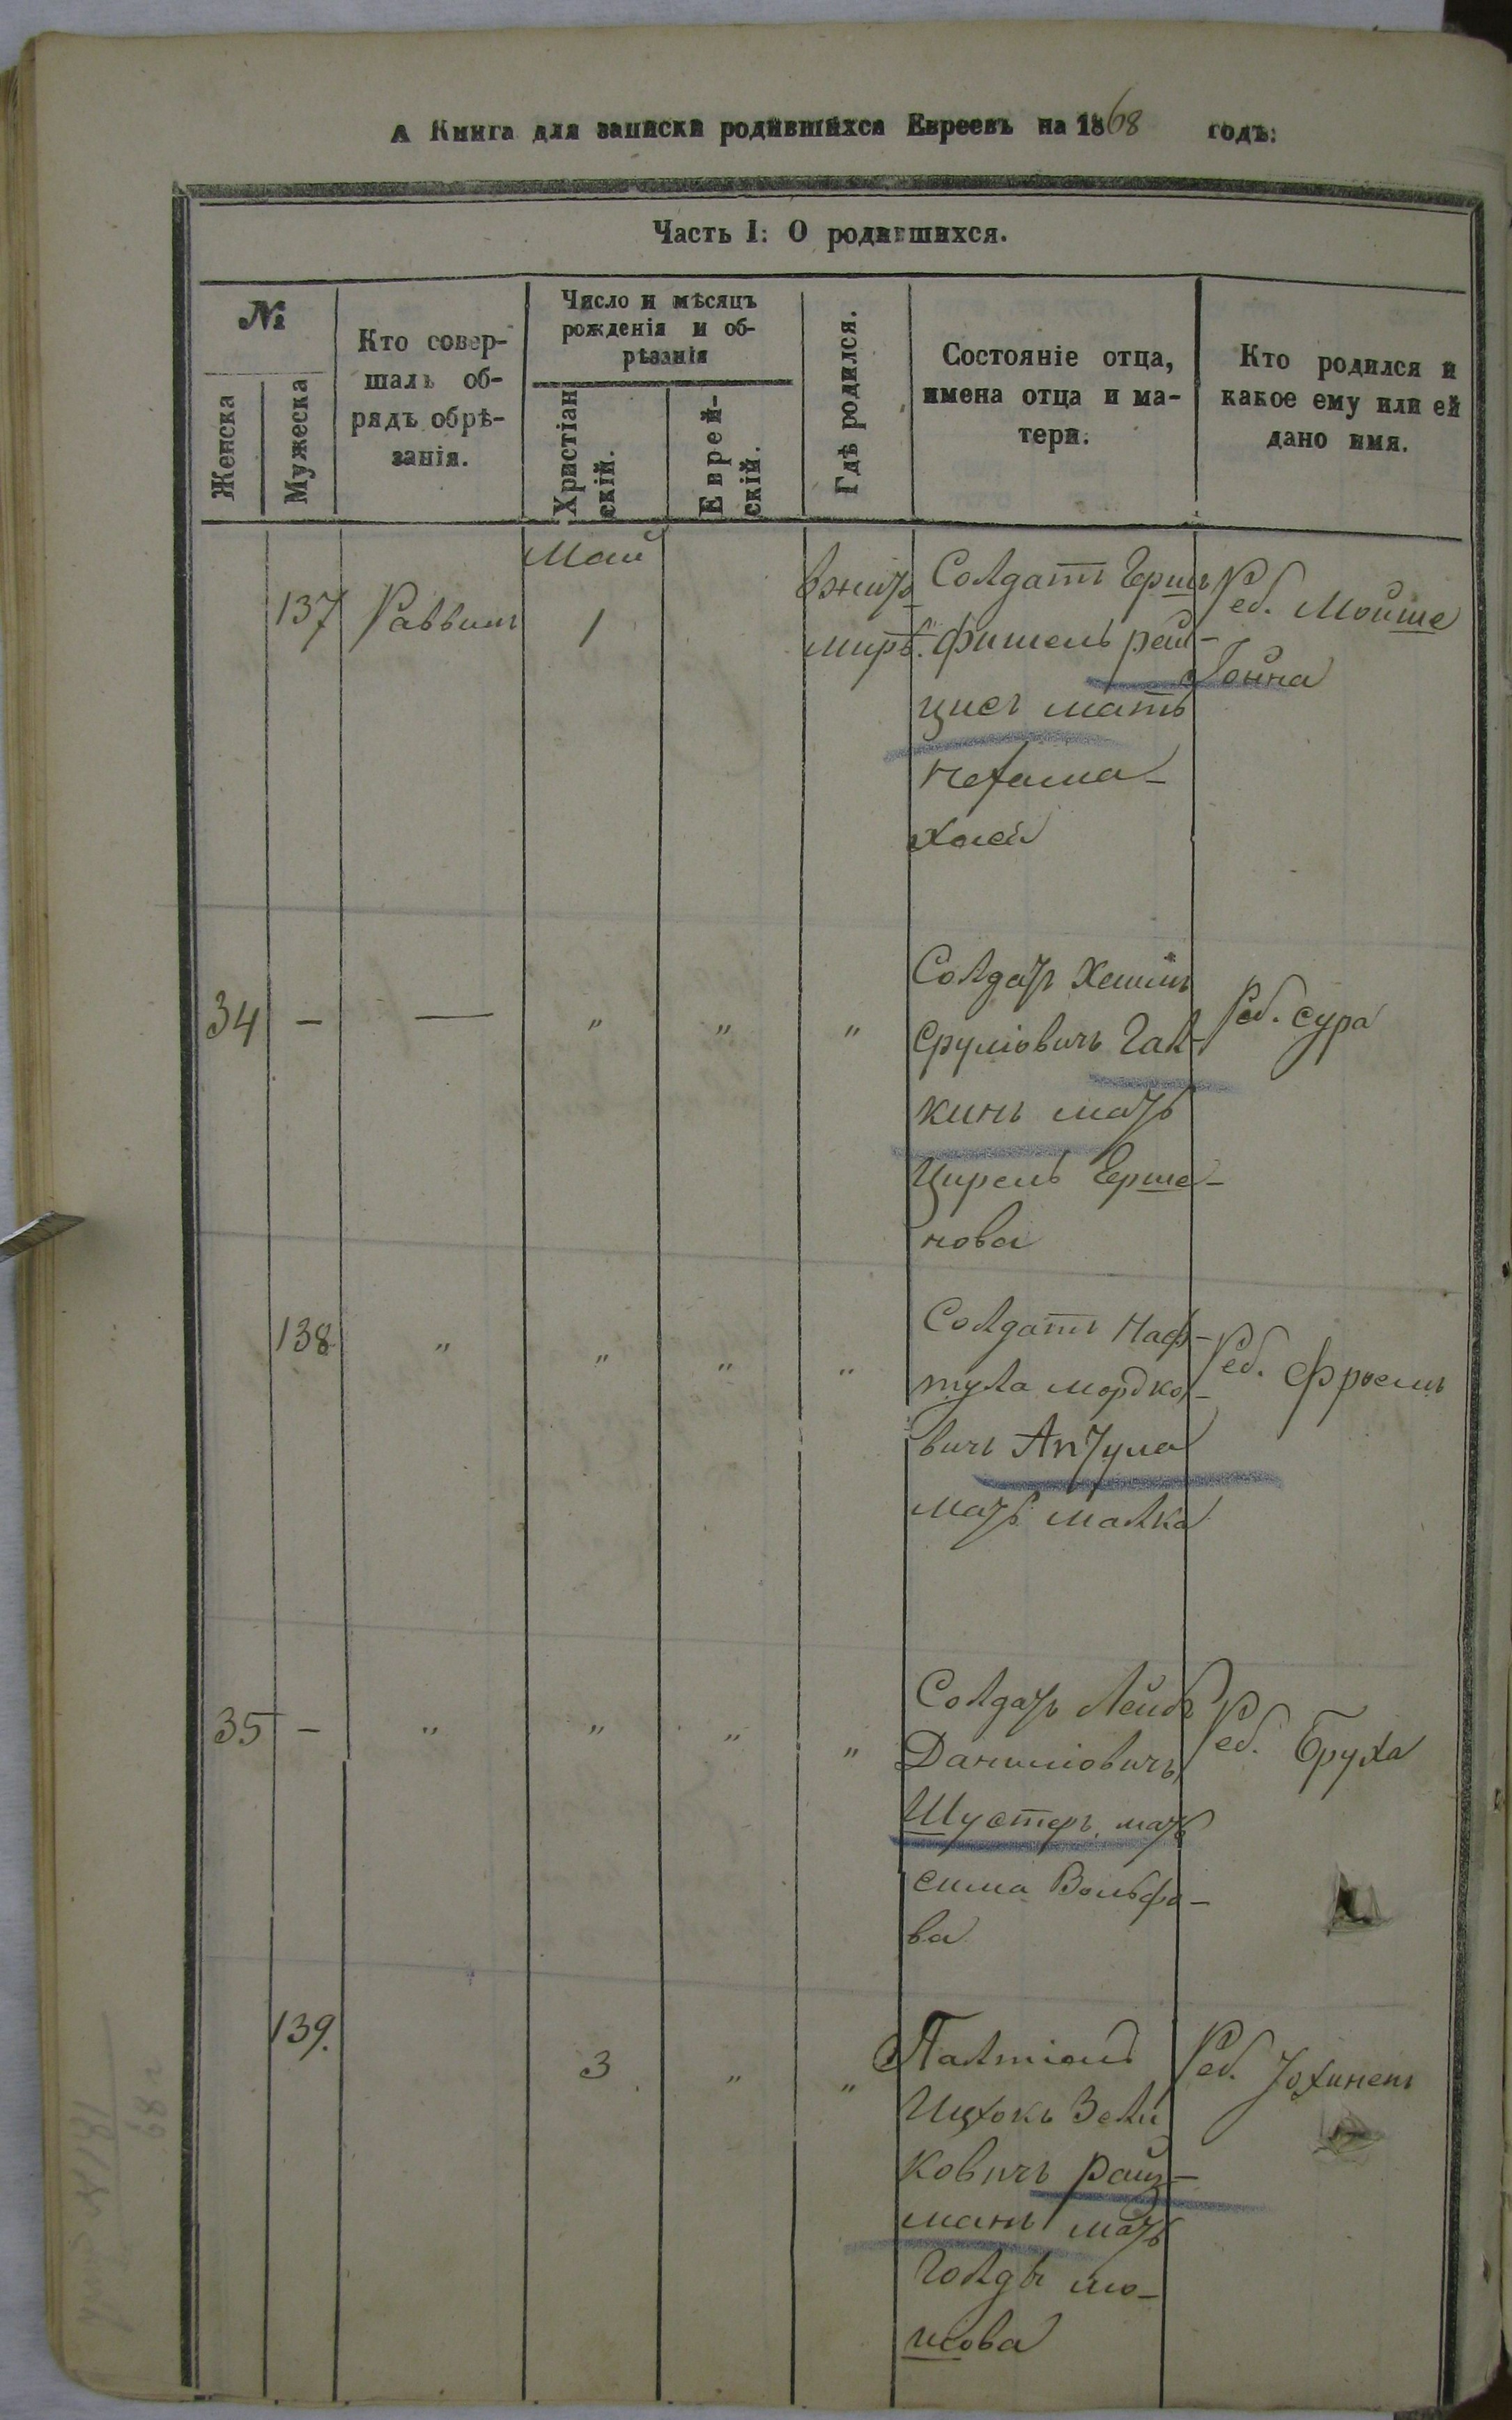 А Книга для записки родившихся Евреевъ на 1868 годъ:
Часть I: О родившихся.
№
Женска
Мужеска
Кто совер-
шалъ об-
рядъ обрѣ-
занія.
Число и мѣсяцъ
рожденія и об-
рѣзанія
Христіан
скій.
Еврей-
скій.
Гдѣ родился.
Состояніе отца,
имена отца и ма-
тери.
Кто родился и
какое ему или ей
дано имя.
Май
137
Раввинъ
1
вжито
миръ.
Солдатъ Герш
фишель рай-
цисъ мать
Нехама-
Реб. Мойше
Іойна
34
-
—
"
"
"
Солдатъ Хаимъ
Сруліовичъ Гал-
кинъ мать
Цирель Герше-
нова
Реб. Сура
138
"
"
"
"
Солдатъ Наф-
тула мордко-
вичъ
мать малка
Реб. Фроимъ
35
-
"
"
"
"
Солдатъ Лейбъ
Даниліовичъ
Шустеръ. мать
сима Вольфо-
ва
Реб. Бруха
139.
3
"
"
Ицхокъ Зели
ковичъ Райз-
манъ мать
Голда мо-
шова
Реб.
181
68